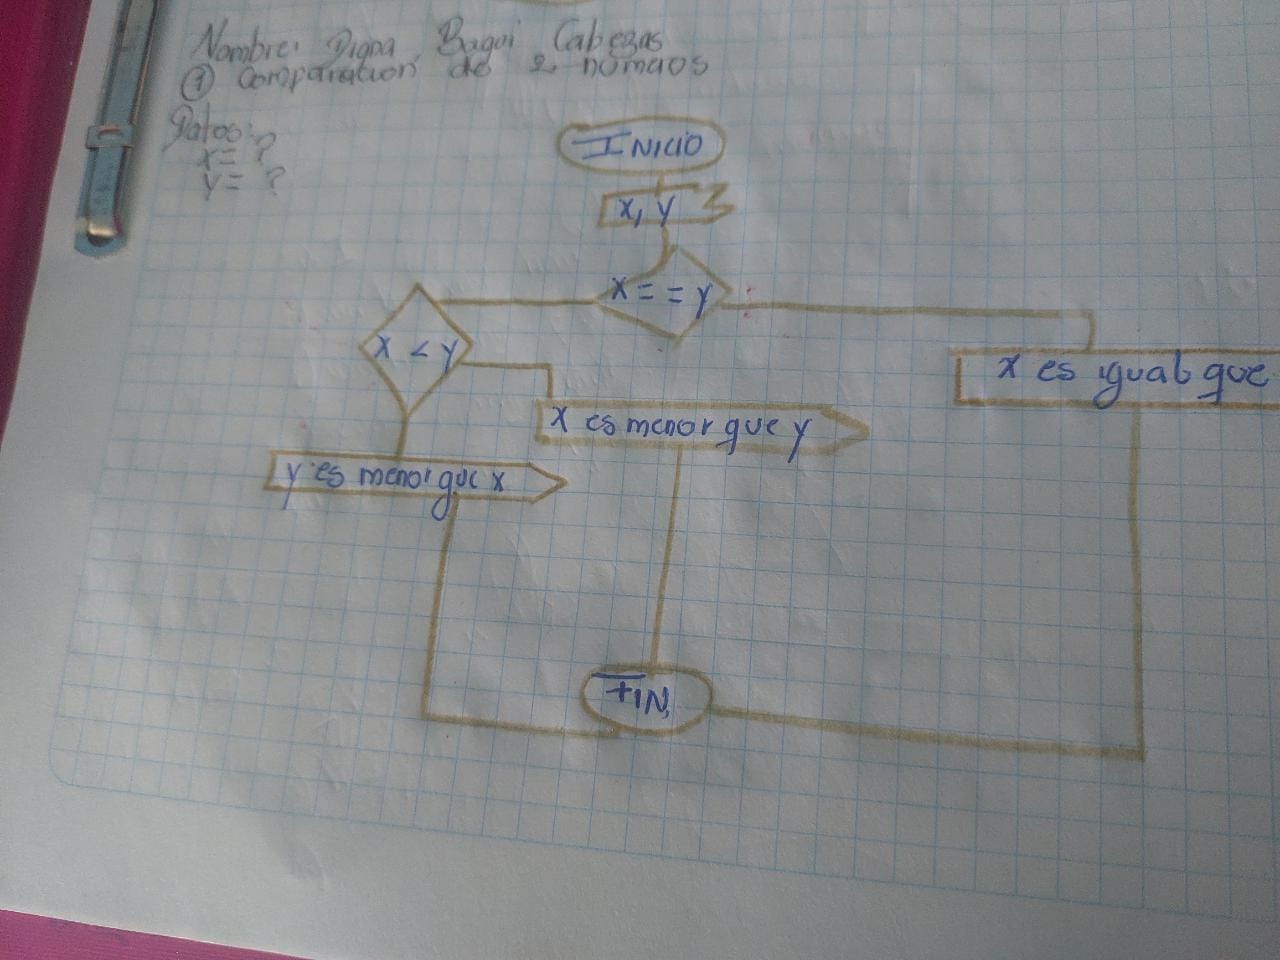 Nombre: Digna Bagui Cabezas
① Comparation de 2 numeros
Datos:
x= ?
y= ?
INICIO
x, y
x = = y
x < y
x es igual que
x es menor que y
y es menor que x
FIN